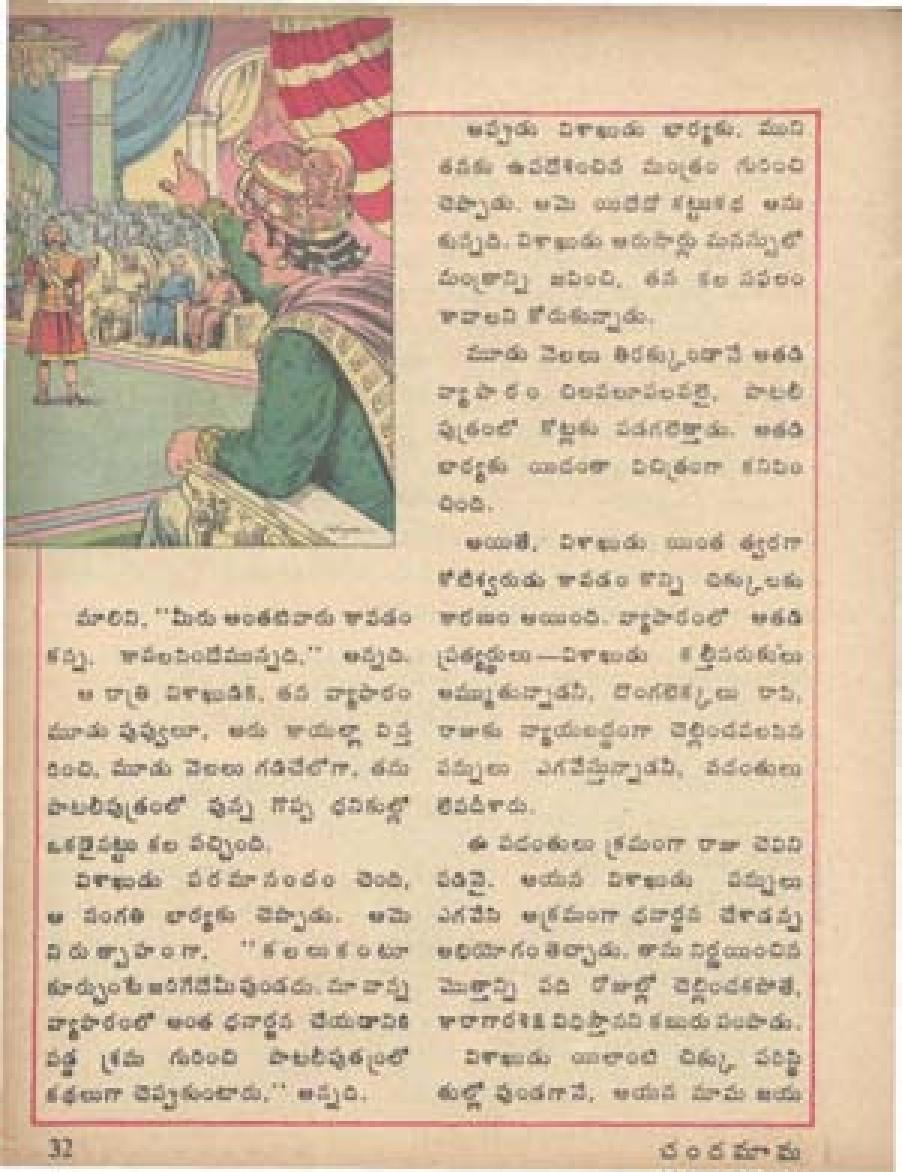 మాలిని, "మీరు అంతటివారు కావడం
కన్న, కావలసిందేమున్నది," అన్నది.
ఆ రాత్రి విశాఖుడికి, తన వ్యాపారం
మూడు పువ్వులూ, ఆరు కాయల్లా విస్త
రించి, మూడు నెలలు గడిచేలోగా, తను
పాటలీపుత్రంలో వున్న గొప్ప ధనికుల్లో
ఒకడైనట్టు కల వచ్చింది.
విశాఖుడు పరమానందం చెంది,
ఆ సంగతి భార్యకు చెప్పాడు. ఆమె
నిరుత్సాహంగా, "కలలుకంటూ
కూర్చుంటే జరిగేదేమీ వుండదు. మా నాన్న
వ్యాపారంలో అంత ధనార్జన చేయడానికి
పడ్డ శ్రమ గురించి పాటలీపుత్రంలో
కథలుగా చెప్పుకుంటారు," అన్నది.
అప్పుడు విశాఖుడు భార్యకు, ముని
తనకు ఉపదేశించిన మంత్రం గురించి
చెప్పాడు. ఆమె యిదేదో కట్టుకథ అను
కున్నది. విశాఖుడు ఆరుసార్లు మనస్సులో
మంత్రాన్ని జపించి, తన కల సఫలం
కావాలని కోరుకున్నాడు.
మూడు నెలలు తిరక్కుండానే అతడి
వ్యాపారం దినదినాభివృద్ధి పాటలీ
పుత్రంలో కోట్లకు పడగలెత్తాడు. అతడి
భార్యకు యిదంతా విచిత్రంగా కనిపిం
చింది.
అయితే, విశాఖుడు యింత త్వరగా
కోటీశ్వరుడు కావడం కొన్ని చిక్కులకు
కారణం అయింది. వ్యాపారంలో అతడి
ప్రత్యర్థులు—విశాఖుడు కల్తీసరుకులు
అమ్ముతున్నాడనీ, దొంగలెక్కలు రాసి,
రాజుకు న్యాయబద్ధంగా చెల్లించవలసిన
పన్నులు ఎగవేస్తున్నాడనీ, వదంతులు
లేవదీశారు.
ఈ వదంతులు క్రమంగా రాజు చెవిని
పడినై. ఆయన విశాఖుడు పన్నులు
ఎగవేసి అక్రమంగా ధనార్జన చేశాడన్న
అభియోగం తెచ్చాడు. తాను నిర్ణయించిన
మొత్తాన్ని పది రోజుల్లో చెల్లించకపోతే,
కారాగారశిక్ష విధిస్తానని కబురు పంపాడు.
విశాఖుడు యిలాంటి చిక్కు పరిస్థి
తుల్లో వుండగానే, ఆయన మామ జయ
32
చందమామ